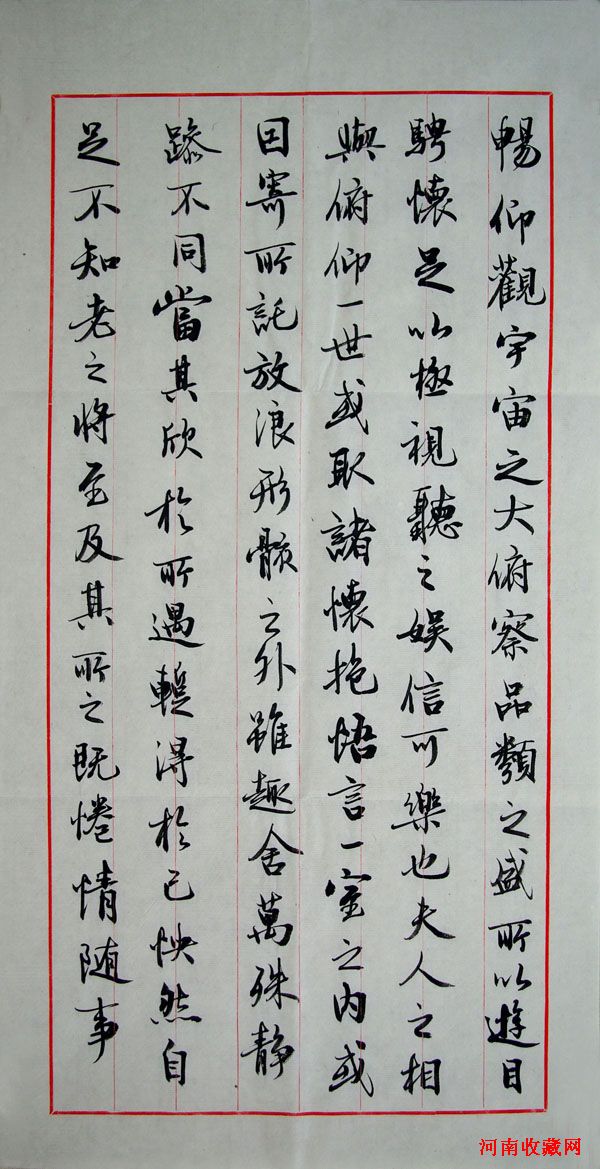 暢仰觀宇宙之大俯察品類之盛所以遊目
騁懷足以極視聽之娱信可樂也夫人之相
與俯仰一世或取諸懷抱悟言一室之内或
因寄所託放浪形骸之外雖趣舍萬殊静
躁不同當其欣於所遇蹔得於己怏然自
足不知老之將至及其所之既惓情随事
河南收藏网